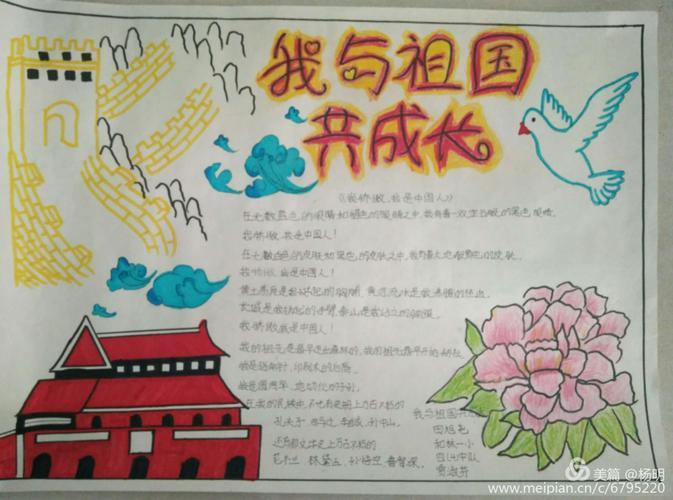 我与祖国
共成长
《我骄傲,我是中国人》
在无数蓝色的眼睛和褐色的眼睛之中,我有着一双宝石般的黑色眼睛.
我骄傲,我是中国人!
在无数白色的皮肤和黑色的皮肤之中,我有着大地般黄色的皮肤.
我骄傲,我是中国人!
黄土高原是我挺起的胸脯,黄河流水是我沸腾的热血.
长城是我扬起的手臂,泰山是我站立的脚跟.
我骄傲,我是中国人!
我的祖先最早走出森林的,我的祖先最早开始耕耘
我是指南针,印刷术的后裔.
我是圆周率,地动仪的子孙.
在我的民族中,不光有史册上万古不朽的
孔夫子,司马迁,李自成,孙中山.
还有那文学史上万古不朽的
花木兰 林黛玉 孙悟空 鲁智深.
我与祖国共成长
美篇 @杨明
www.meipian.cn/c/6795220